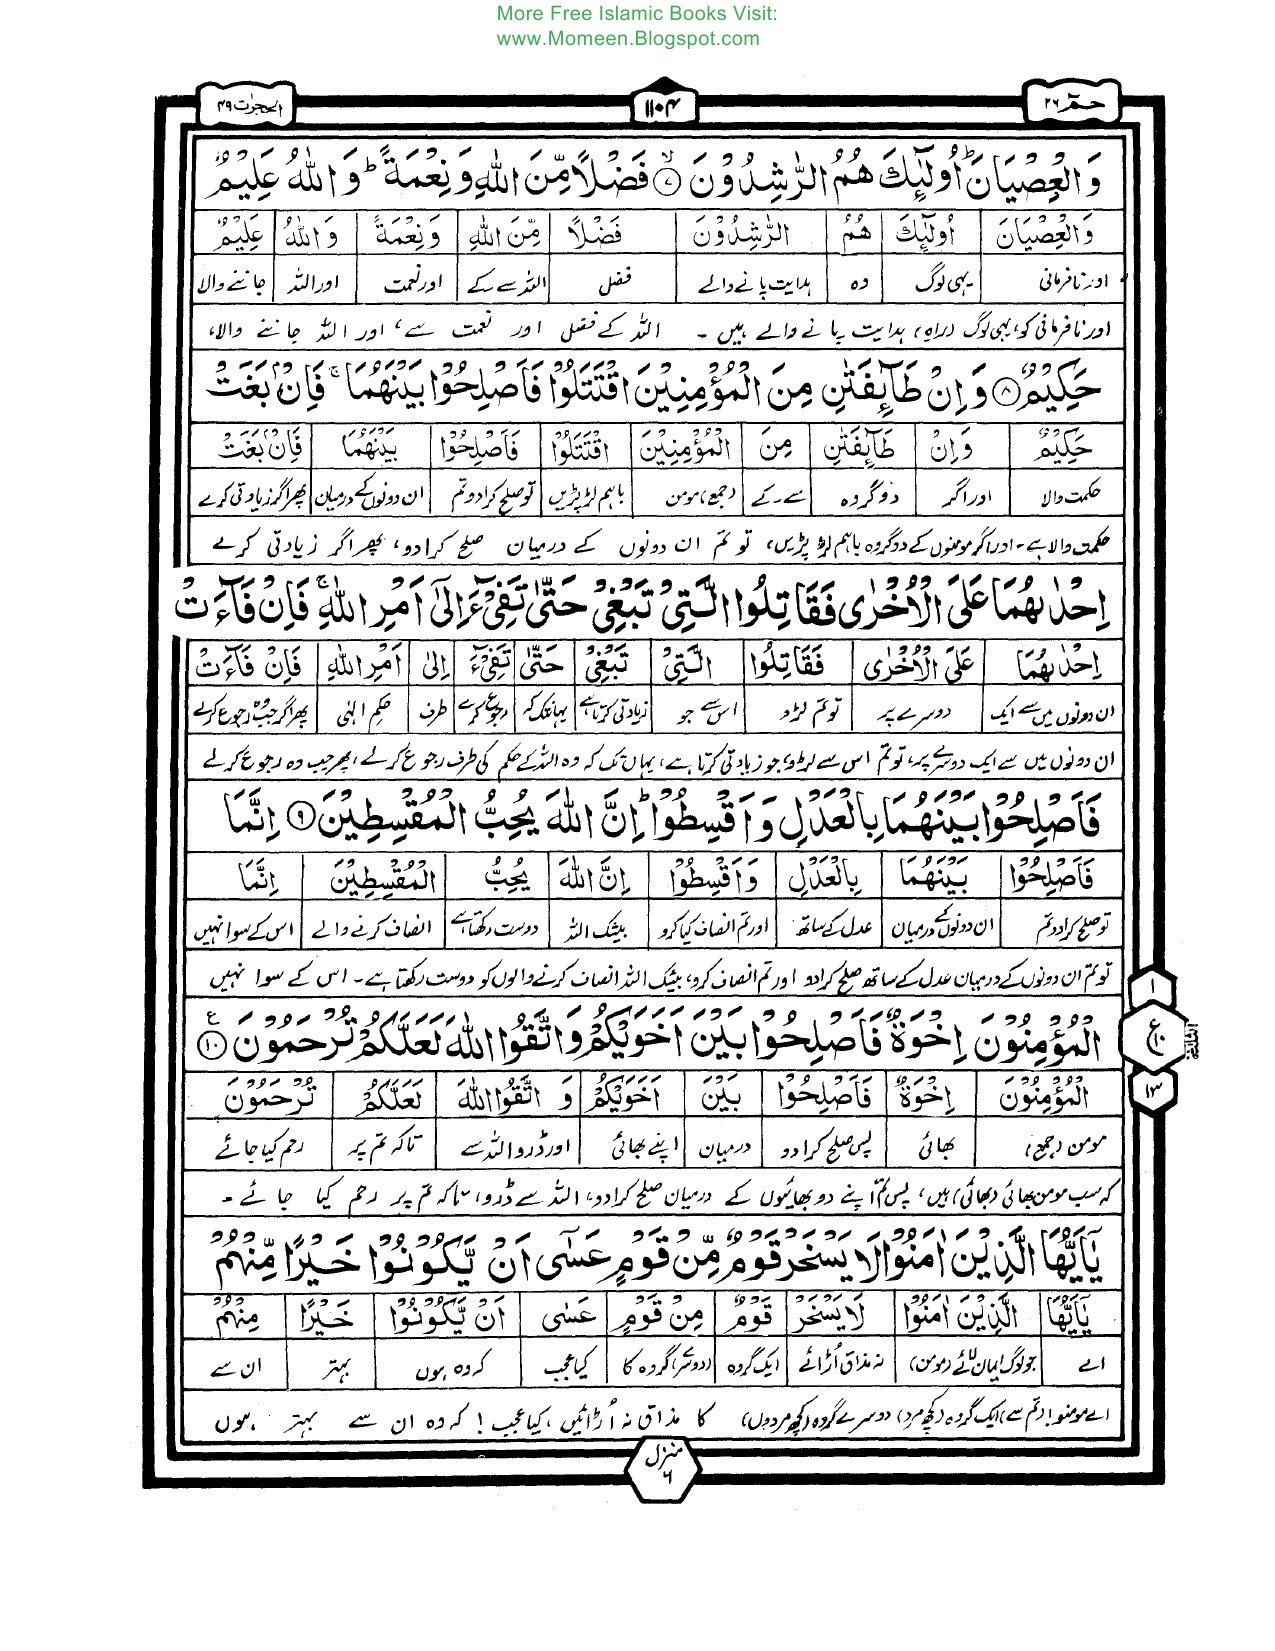 More Free Islamic Books Visit:
www.Momeen.Blogspot.com
حمٓ ۲۶
۱۱۰۴
الحجرٰت ۴۹
وَالْعِصْيَانَ ؕ اُولٰٓئِكَ هُمُ الرّٰشِدُوْنَ ۙ﴿۷﴾ فَضْلًا مِّنَ اللّٰهِ وَنِعْمَةً ؕ وَاللّٰهُ عَلِيْمٌ
وَالْعِصْيَانَ اُولٰٓئِكَ هُمُ الرّٰشِدُوْنَ فَضْلًا مِّنَ اللّٰهِ وَنِعْمَةً وَاللّٰهُ عَلِيْمٌ
اور نافرمانی یہی لوگ وہ ہدایت پانے والے فضل اللہ سے کے اور نعمت اور اللہ جاننے والا
اور نافرمانی کو، یہی لوگ (راہِ) ہدایت پانے والے ہیں ۔ اللہ کے فضل اور نعمت سے، اور اللہ جاننے والا،
حَكِيْمٌ ﴿۸﴾ وَاِنْ طَآئِفَتٰنِ مِنَ الْمُؤْمِنِيْنَ اقْتَتَلُوْا فَاَصْلِحُوْا بَيْنَهُمَا ۚ فَاِنْۢ بَغَتْ
حَكِيْمٌ وَاِنْ طَآئِفَتٰنِ مِنَ الْمُؤْمِنِيْنَ اقْتَتَلُوْا فَاَصْلِحُوْا بَيْنَهُمَا فَاِنْۢ بَغَتْ
حکمت والا اور اگر دو گروہ سے ۔ کے (جمع) مومن باہم لڑ پڑیں تو صلح کرا دو تم ان دونوں کے درمیان پھر اگر زیادتی کرے
حکمت والا ہے ۔ اور اگر مومنوں کے دو گروہ باہم لڑ پڑیں، تو تم ان دونوں کے درمیان صلح کرا دو، پھر اگر زیادتی کرے
اِحْدٰىهُمَا عَلَى الْاُخْرٰى فَقَاتِلُوا الَّتِيْ تَبْغِيْ حَتّٰى تَفِيْٓءَ اِلٰٓى اَمْرِ اللّٰهِ ۚ فَاِنْ فَآءَتْ
اِحْدٰىهُمَا عَلَى الْاُخْرٰى فَقَاتِلُوا الَّتِيْ تَبْغِيْ حَتّٰى تَفِيْٓءَ اِلٰٓى اَمْرِ اللّٰهِ فَاِنْ فَآءَتْ
ان دونوں میں سے ایک دوسرے پر تو تم لڑو اس سے جو زیادتی کرتا ہے یہانتک کہ رجوع کرے طرف حکمِ الٰہی پھر اگر جب وہ رجوع کرلے
ان دونوں میں سے ایک دوسرے پر، تو تم اس سے لڑو جو زیادتی کرتا ہے، یہاں تک کہ وہ اللہ کے حکم کی طرف رجوع کرلے، پھر جب وہ رجوع کرلے
فَاَصْلِحُوْا بَيْنَهُمَا بِالْعَدْلِ وَاَقْسِطُوْا ؕ اِنَّ اللّٰهَ يُحِبُّ الْمُقْسِطِيْنَ ﴿۹﴾ اِنَّمَا
فَاَصْلِحُوْا بَيْنَهُمَا بِالْعَدْلِ وَاَقْسِطُوْا اِنَّ اللّٰهَ يُحِبُّ الْمُقْسِطِيْنَ اِنَّمَا
تو صلح کرا دو تم ان دونوں کے درمیان عدل کے ساتھ اور تم انصاف کیا کرو بیشک اللہ دوست رکھتا ہے انصاف کرنے والے اس کے سوا نہیں
تو تم ان دونوں کے درمیان عدل کے ساتھ صلح کرا دو اور تم انصاف کرو، بیشک اللہ انصاف کرنے والوں کو دوست رکھتا ہے ۔ اس کے سوا نہیں
الْمُؤْمِنُوْنَ اِخْوَةٌ فَاَصْلِحُوْا بَيْنَ اَخَوَيْكُمْ وَاتَّقُوا اللّٰهَ لَعَلَّكُمْ تُرْحَمُوْنَ ﴿۱۰﴾ ع
الْمُؤْمِنُوْنَ اِخْوَةٌ فَاَصْلِحُوْا بَيْنَ اَخَوَيْكُمْ وَ اتَّقُوا اللّٰهَ لَعَلَّكُمْ تُرْحَمُوْنَ
مومن (جمع) بھائی پس صلح کرا دو درمیان اپنے بھائی اور ڈرو اللہ سے تاکہ تم پر رحم کیا جائے
کہ سب مومن بھائی (بھائی) ہیں، پس تم اپنے دو بھائیوں کے درمیان صلح کرا دو، اللہ سے ڈرو، تاکہ تم پر رحم کیا جائے ۔
۱
ع ۱۰
۱۳
يٰٓاَيُّهَا الَّذِيْنَ اٰمَنُوْا لَا يَسْخَرْ قَوْمٌ مِّنْ قَوْمٍ عَسٰٓى اَنْ يَّكُوْنُوْا خَيْرًا مِّنْهُمْ
يٰٓاَيُّهَا الَّذِيْنَ اٰمَنُوْا لَا يَسْخَرْ قَوْمٌ مِّنْ قَوْمٍ عَسٰٓى اَنْ يَّكُوْنُوْا خَيْرًا مِّنْهُمْ
اے جو لوگ ایمان لائے (مومن) نہ مذاق اُڑائے ایک گروہ (دوسرے) گروہ کا کیا عجب کہ وہ ہوں بہتر ان سے
اے مومنو! (تم سے) ایک گروہ (کچھ مرد) دوسرے گروہ (کچھ مردوں) کا مذاق نہ اُڑائیں، کیا عجب! کہ وہ ان سے بہتر ہوں
منزل ۶